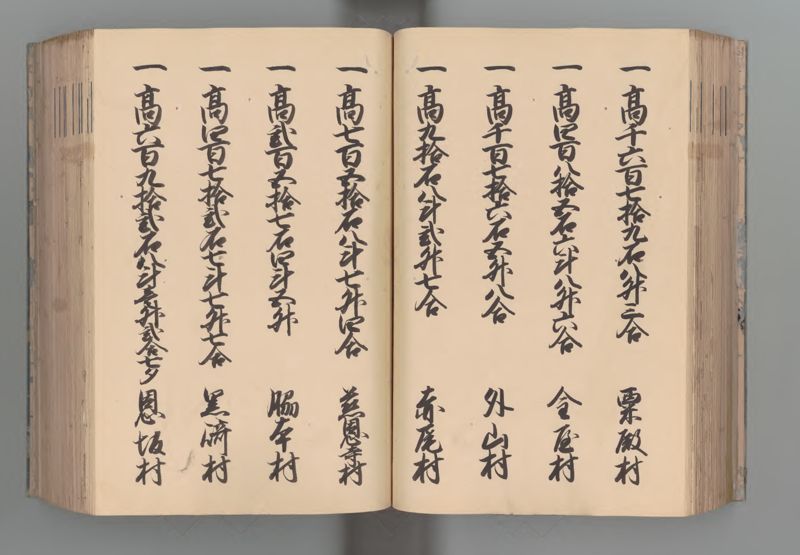 一 高千六百七拾九石八升三合 粟殿村
一 高四百八拾五石六斗八升六合 金屋村
一 高千百七拾六石五升八合 外山村
一 高九拾石八斗弐升七合 赤尾村
一 高七百五拾石八斗七升四合 慈恩寺村
一 高弐百五拾七石四斗五升 脇本村
一 高四百七拾弐石七斗七升七合 黒崎村
一 高六百九拾弐石八斗壱升弐合七夕 恩坂村